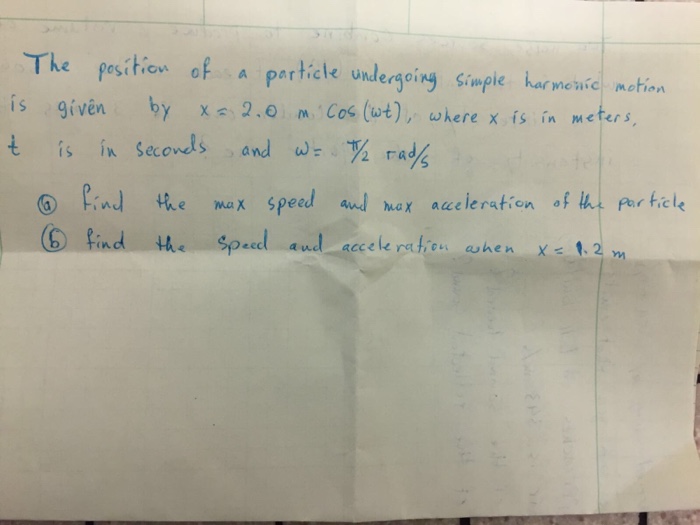 The position of a particle undergoing simple harmonic motion
is given by x = 2.0 m cos (ωt), where x is in meters,
t is in seconds and ω = π/2 rad/s
ⓐ find the max speed and max acceleration of the particle
ⓑ find the speed and acceleration when x = 1.2 m